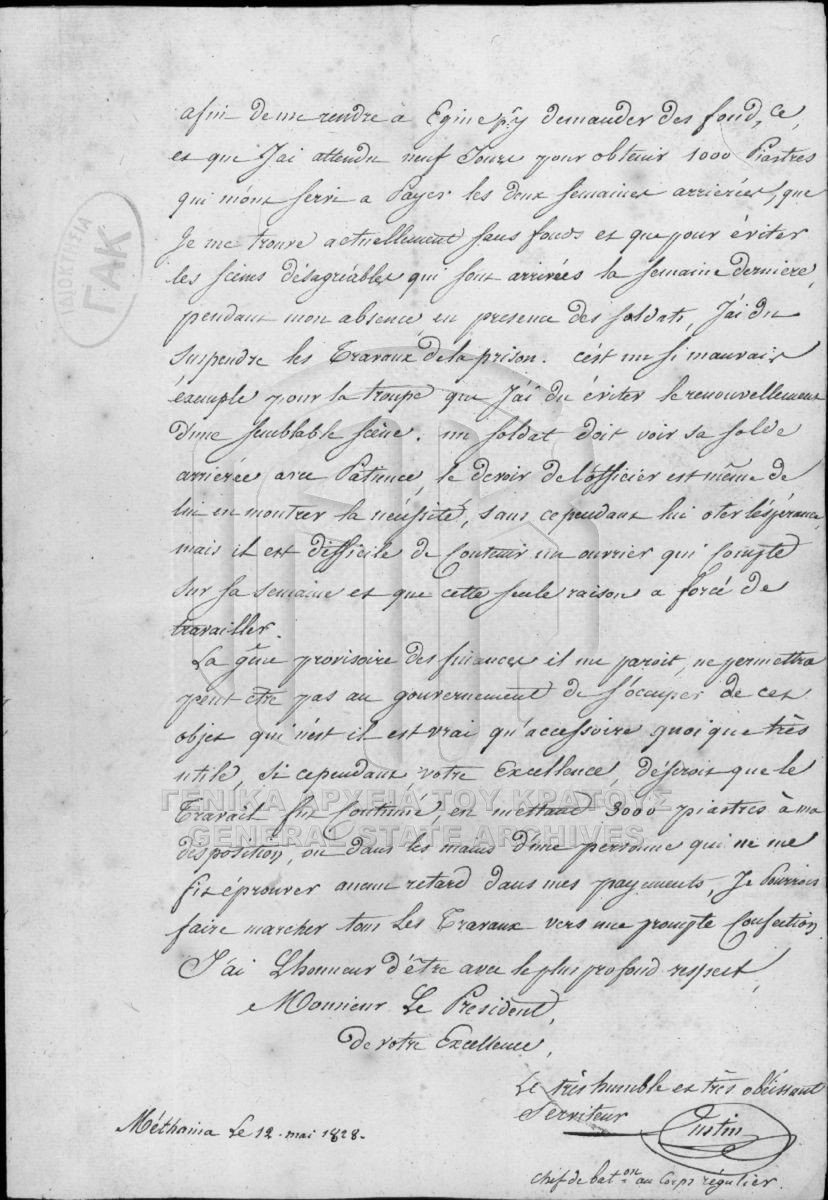 afin de me rendre à Egine p.r y demander des fonds, ce,
et que J'ai attendu neuf Jours pour obtenir 1000 Piastres
qui m'ont servi a Payer les deux semaines arriérées, que
Je me trouve actuellement sans fonds et que pour éviter
les scènes désagréables qui sont arrivées la semaine dernière,
pendant mon absence en presence des soldats, J'ai du
suspendre les Travaux de la prison. c'est un si mauvais
éxemple pour la troupe que J'ai du éviter le renouvellement
d'une semblable scène. un soldat doit voir sa solde
arrierée avec Patience, le devoir de l'officier est même de
lui en montrer la nécéssité, sans cependant lui oter l'éspérance,
mais il est difficile de Contenir un ouvrier qui Compte
sur sa semaine et que cette seule raison a forcé de
travailler.
La gêne provisoire des finances il me paroit, ne permettra
peut être pas au gouvernement de s'occuper de cet
objet qui n'est il est vrai qu'accessoire quoique très
utile, si cependant, votre Excellence, désiroit que le
Travail fut Continué, en mettant 3000 piastres à ma
disposition, ou dans les mains d'une personne qui ne me
fit éprouver aucun retard dans mes payements, Je Pourrois
faire marcher tous les Travaux vers une prompte Confection.
J'ai L'honneur d'être avec le plus profond respect,
Monsieur Le President,
de votre Excellence,
Le très humble et très obéissant
Serviteur
Justin
Méthana Le 12 mai 1828.
chef de bat.on au Corps régulier.
ΙΔΙΟΚΤΗΣΙΑ
ΓΑΚ
ΓΕΝΙΚΑ ΑΡΧΕΙΑ ΤΟΥ ΚΡΑΤΟΥΣ
GENERAL STATE ARCHIVES